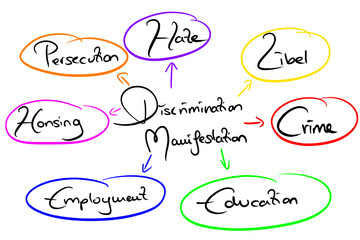 Hate
Persecution
Libel
Housing
Discrimination
Manifestation
Crime
Employment
Education